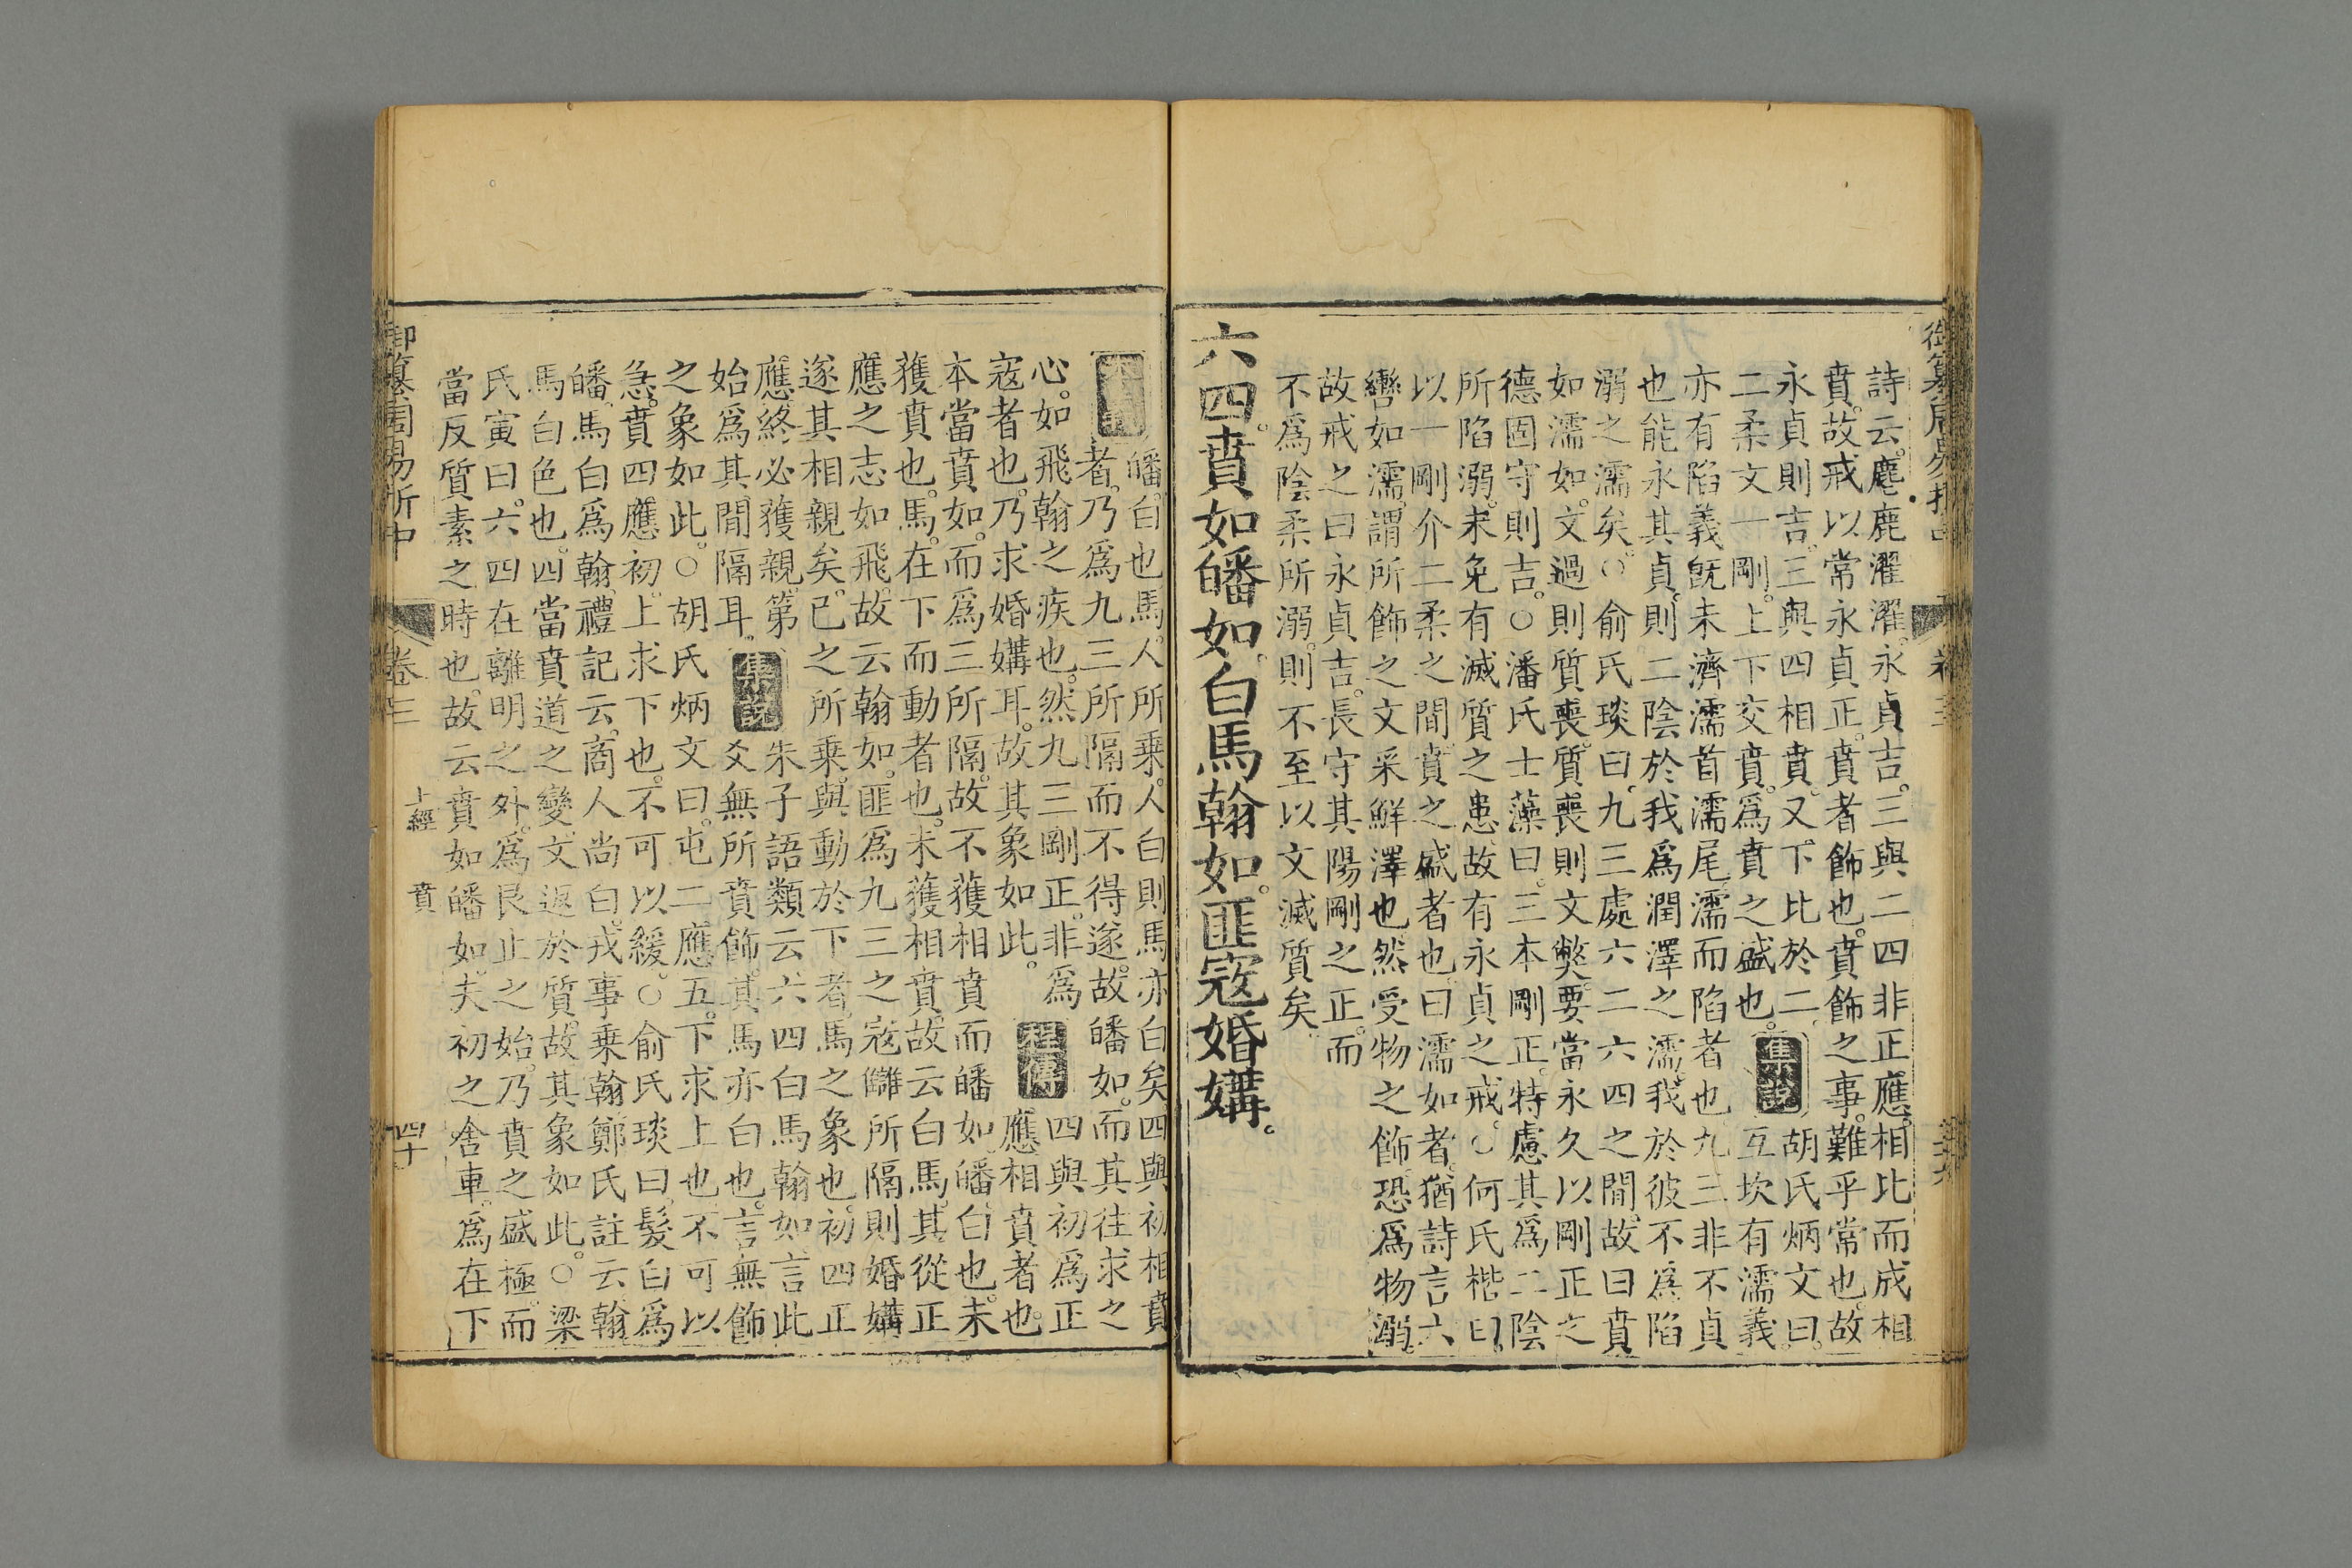 詩云。麀鹿濯濯。永貞吉。三與二四非正應。相比而成相
賁。故戒以常永貞正。賁者飾也。賁飾之事。難乎常也。故
永貞則吉。三與四相賁。又下比於二。
二柔文一剛。上下交賁。爲賁之盛也。
集說
胡氏炳文曰。
互坎有濡義。
亦有陷義旣未濟濡首濡尾濡而陷者也九三非不貞
也能永其貞。則二陰於我爲潤澤之濡。我於彼不爲陷
溺之濡矣。○俞氏琰曰。九三處六二六四之閒。故曰賁
如濡如。文過則質喪。質喪則文弊。要當永久以剛正之
德固守則吉。○潘氏士藻曰。三本剛正。特慮其爲二陰
所陷溺。未免有滅質之患。故有永貞之戒。○何氏楷曰。
以一剛介二柔之閒。賁之盛者也。曰濡如者。猶詩言六
轡如濡。謂所飾之文采鮮澤也。然受物之飾。恐爲物溺。
故戒之曰永貞吉。長守其陽剛之正。而
不爲陰柔所溺。則不至以文滅質矣。
六四。賁如皤如。白馬翰如。匪寇婚媾。
皤。白也馬。人所乗。人白則馬亦白矣四與初相賁
者。乃爲九三所隔而不得遂。故皤如。而其往求之
心。如飛翰之疾也。然九三剛正。非爲
寇者也。乃求婚媾耳。故其象如此。
程傳
四與初爲正
應相賁者也。
本當賁如。而爲三所隔。故不獲相賁而皤如。皤。白也。未
獲賁也。馬。在下而動者也。未獲相賁。故云白馬。其從正
應之志如飛。故云翰如。匪爲九三之寇讎所隔則婚媾
遂其相親矣。已之所乗。與動於下者。馬之象也。初四正
應。終必獲親。第
始爲其閒隔耳。
集說
朱子語類云六四白馬翰如。言此
爻無所賁飾。其馬亦白也。言無飾
之象如此。○胡氏炳文曰。屯二應五。下求上也。不可以
急。賁四應初。上求下也。不可以緩。○俞氏琰曰。髮白爲
皤。馬白爲翰。禮記云。商人尚白。戎事乗翰。鄭氏註云。翰
馬白色也。四當賁道之變。文返於質。故其象如此。○梁
氏寅曰。六四在離明之外。爲艮止之始。乃賁之盛極。而
當反質素之時也。故云賁如皤如。夫初之舍車。爲在下
御纂周易折中 卷三 上經 賁 四十